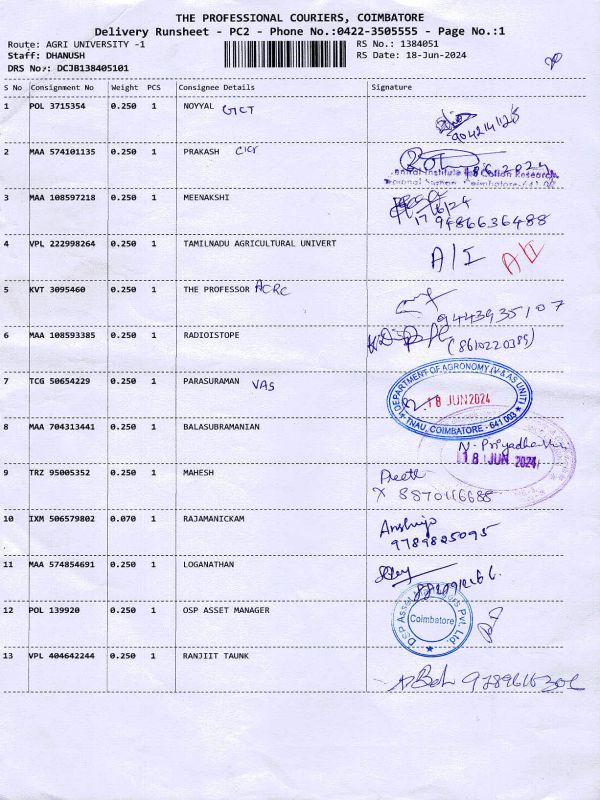 THE PROFESSIONAL COURIERS, COIMBATORE
Delivery Runsheet - PC2 - Phone No.:0422-3505555 - Page No.:1
Route: AGRI UNIVERSITY -1 RS No.: 1384051
Staff: DHANUSH RS Date: 18-Jun-2024
DRS No.: DCJB138405101
S No Consignment No Weight PCS Consignee Details Signature
1 POL 3715354 0.250 1 NOYYAL GCT
2 MAA 574101135 0.250 1 PRAKASH CICR
Central Institute for Cotton Research
Regional Station Coimbatore-641 003
3 MAA 108597218 0.250 1 MEENAKSHI
9486636488
4 VPL 222998264 0.250 1 TAMILNADU AGRICULTURAL UNIVERT A/I A/I
5 KVT 3095460 0.250 1 THE PROFESSOR ACRC
9443935107
6 MAA 108593385 0.250 1 RADIOISTOPE
(8610220385)
7 TCG 50654229 0.250 1 PARASURAMAN VAS
DEPARTMENT OF AGRONOMY (V & AS UNIT)
18 JUN 2024
TNAU, COIMBATORE - 641 003
8 MAA 704313441 0.250 1 BALASUBRAMANIAN
18 JUN 2024
9 TRZ 95005352 0.250 1 MAHESH Preethi
10 IXM 506579802 0.070 1 RAJAMANICKAM
9789825095
11 MAA 574854691 0.250 1 LOGANATHAN
12 POL 139920 0.250 1 OSP ASSET MANAGER
DSP Asset Managers Pvt. Ltd.
Coimbatore
13 VPL 404642244 0.250 1 RANJIIT TAUNK